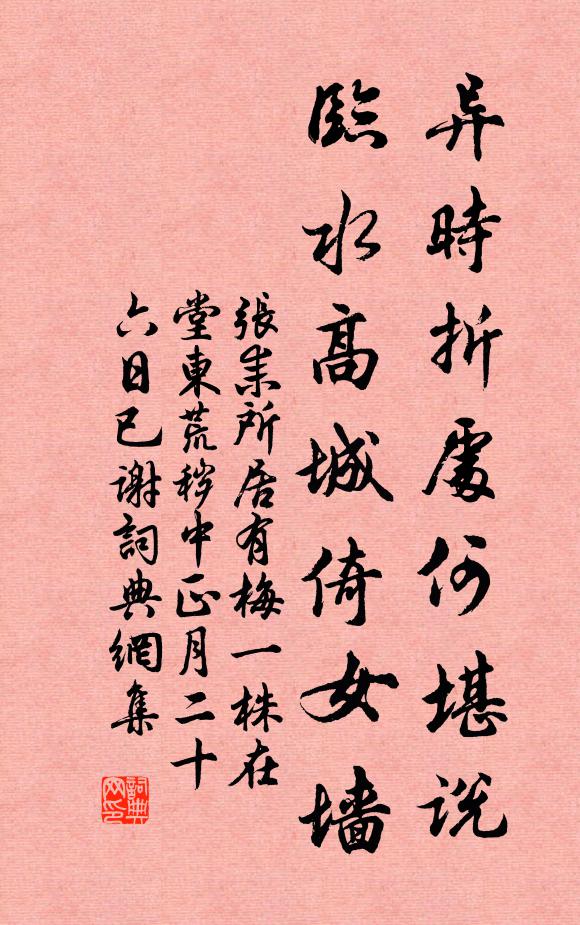 异時折處何堪説
臨水高城倚女墻
張耒所居有梅一株在
堂東荒穢中正月二十
六日已谢詞典網集
詞典网印